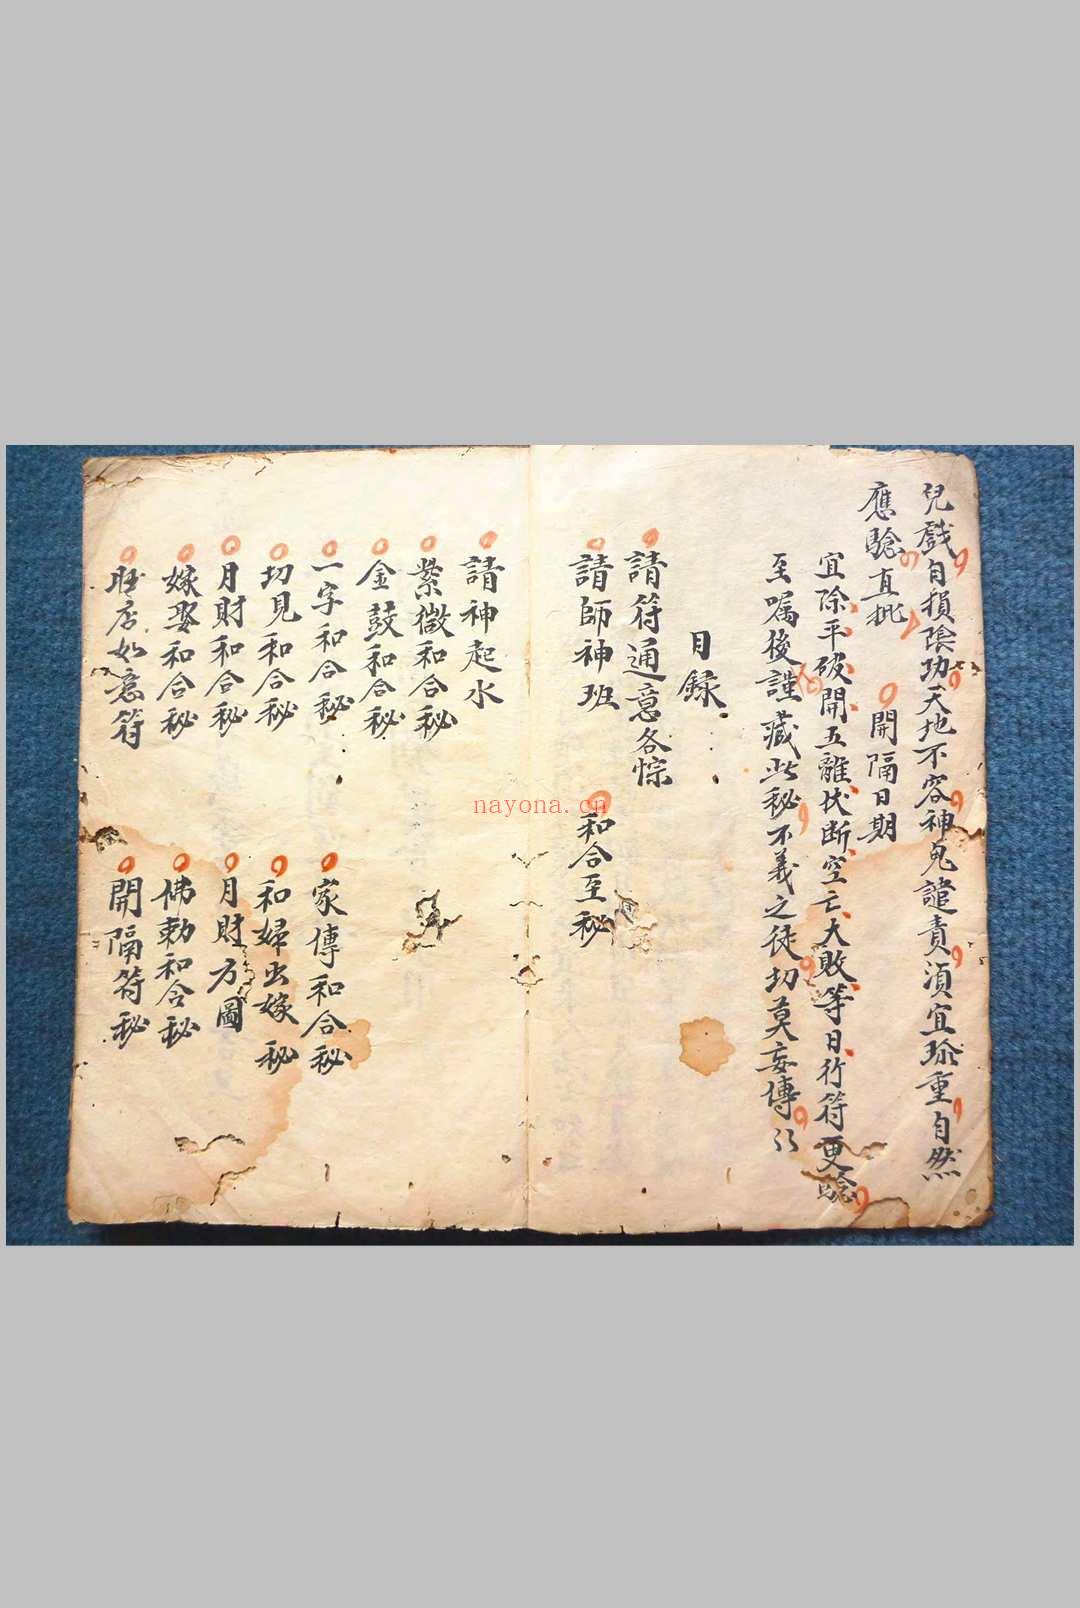 兒戲自損陰功天地不容神鬼譴責須宜珍重自然
應騐直批
開隔日期
宜除平破開五離伏断空亡大敗等日行符更騐
至嘱後謹藏此秘不義之徒切莫妄傳
目録
請符通意各悰
請師神班
和合至秘
請神起水
紫微和合秘
金鼓和合秘
一字和合秘
家傳和合秘
切見和合秘
和婦出嫁秘
月財和合秘
月財方圖
嫁娶和合秘
佛勅和合秘
旺店如意符
開隔符秘
nayona.cn